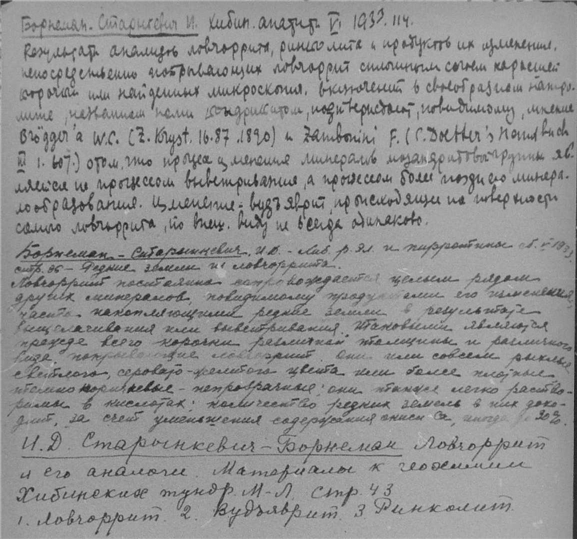 Борнеман-Старынкевич И. Хибин. апатит. VI 1933. 114.
Результаты анализов ловчоррита, ринколита и продуктов их изменения,
непосредственно покрывающих ловчоррит сплошным слоем
корочки или найденных микроскопич. включений в своеобразном
названном нами подтверждают, повидимому, мнение
Brögger'a W.C. (Z. Kryst. 16. 87. 1890) и Zambonini F. (C. Doelter's Handbuch
III 1. 607.) о том, что процесс изменения минералов мозандритовой группы яв-
ляется не процессом выветривания, а процессом более позднего минера-
лообразования. Изменение - вудъяврит, происходящее на поверхности
самого ловчоррита, по внеш. виду не всегда одинаково.
Борнеман-Старынкевич, И.Д. - р. эл. и пирротины сб. 1933,
стр. Редкие земли из ловчоррита.
Ловчоррит постоянно сопровождается целым рядом
других минералов, повидимому продуктами его изменения,
часто накопляющими редкие земли в результате
выщелачивания или выветривания. Таковыми являются
прежде всего корочки различной толщины и различного
вида, покрывающие ловчоррит. Они или совсем рыхлые
светлого, серовато-желтого цвета или более плотные
темнокоричневые - непрозрачные; они также легко раство-
римы в кислотах; количество редких земель в них дохо-
дит, за счет уменьшения содержания окиси Ca, иногда до 20%.
И.Д. Старынкевич-Борнеман Ловчоррит
и его аналоги Материалы к геохимии
Хибинских тундр. М-Л. стр. 43
1. Ловчоррит. 2. Вудъяврит. 3 Ринколит.